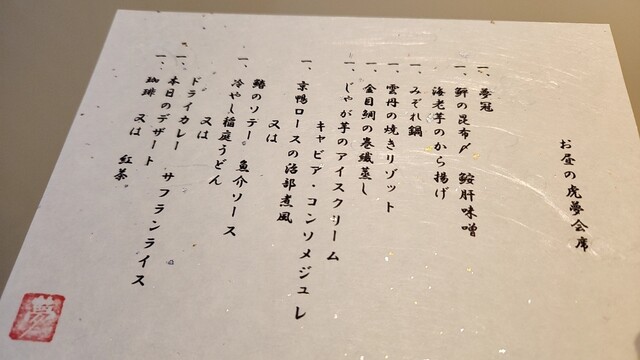 お昼の虎夢会席
一、夢冠
一、鮃の昆布〆　鮟肝味噌
海老芋のから揚げ
一、みぞれ鍋
一、雲丹の焼きリゾット
一、金目鯛の巻繊蒸し
一、じゃが芋のアイスクリーム
キャビア・コンソメジュレ
一、京鴨ロースの治部煮風
又は
鰆のソテー。魚介ソース
一、冷やし稲庭うどん
又は
ドライカレー　サフランライス
一、本日のデザート
珈琲　又は　紅茶。